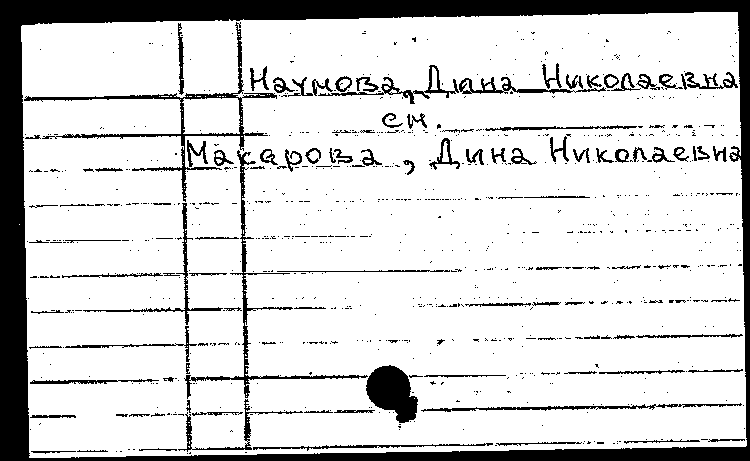 Наумова, Дина Николаевна
см.
Макарова, Дина Николаевна